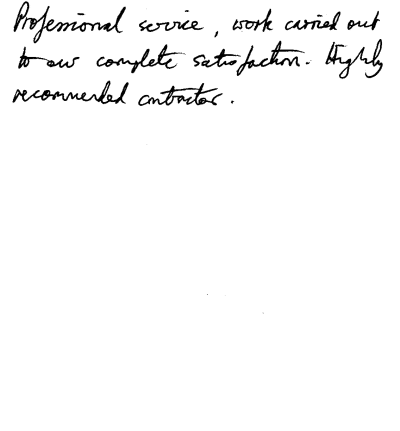 Professional service, work carried out
to our complete satisfaction. Highly
recommended contractor.